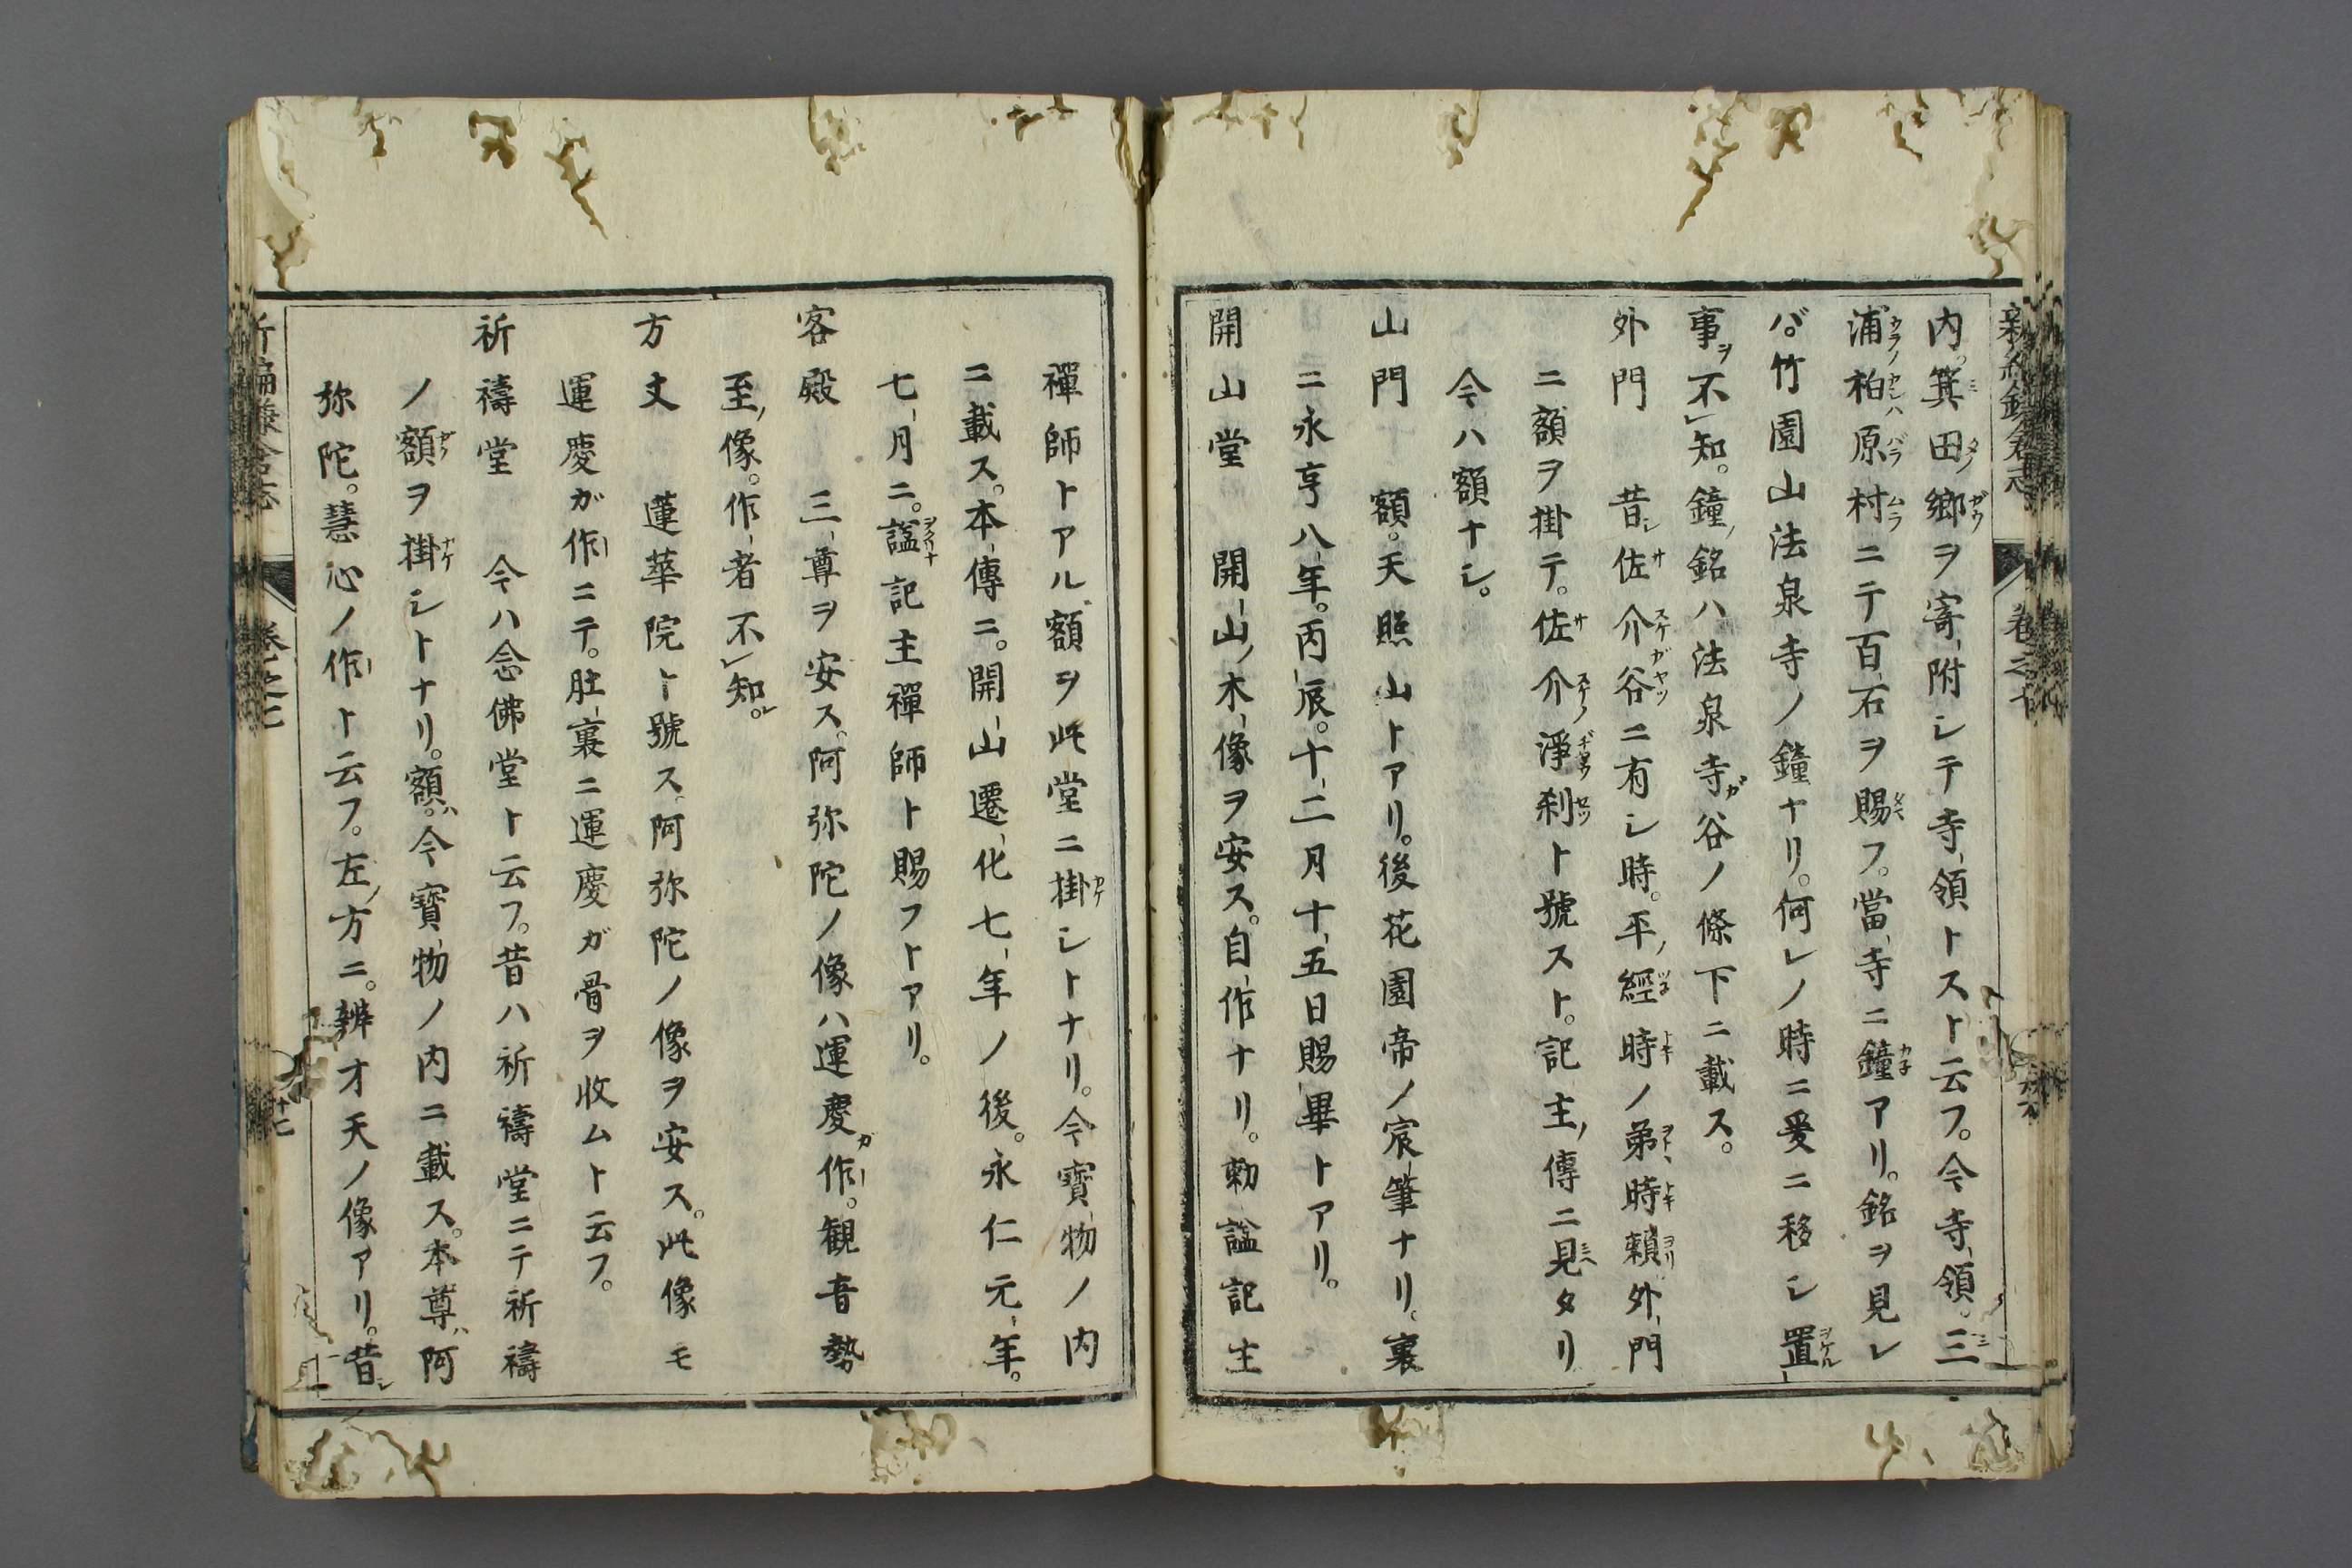 内。箕田郷ヲ寄附シテ寺領トスト云フ。今寺領。三
浦柏原村ニテ百石ヲ賜フ。當寺ニ鐘アリ。銘ヲ見レ
バ。竹園山法泉寺ノ鐘ナリ。何レノ時ニ爰ニ移シ置
事ヲ不レ知。鐘ノ銘ハ法泉寺ガ谷ノ條下ニ載ス。
外門　昔シ佐介谷ニ有シ時。平ノ經時ノ弟時頼外門
ニ額ヲ掛テ。佐介淨刹ト號スト。記主ノ傳ニ見タリ
今ハ額ナシ。
山門　額。天照山トアリ。後花園帝ノ宸筆ナリ。裏
ニ永亨八年。丙辰。十二月十五日賜畢トアリ。
開山堂　開山ノ木像ヲ安ス。自作ナリ。勅謚記主
禪師トアル額ヲ此堂ニ掛シトナリ。今寶物ノ内
ニ載ス。本傳ニ。開山遷化七年ノ後。永仁元年。
七月ニ。謚記主禪師ト賜フトアリ。
客殿　三尊ヲ安ス。阿弥陀ノ像ハ運慶ガ作。観音勢
至ノ像。作者不レ知。
方丈　蓮華院ト號ス。阿弥陀ノ像ヲ安ス。此像モ
運慶ガ作ニテ。肚裏ニ運慶ガ骨ヲ收ムト云フ。
祈禱堂　今ハ念佛堂ト云フ。昔ハ祈禱堂ニテ祈禱
ノ額ヲ掛シトナリ。額ハ。今寶物ノ内ニ載ス。本尊ハ阿
弥陀。慧心ノ作ト云フ。左ノ方ニ。辨才天ノ像アリ。昔シ